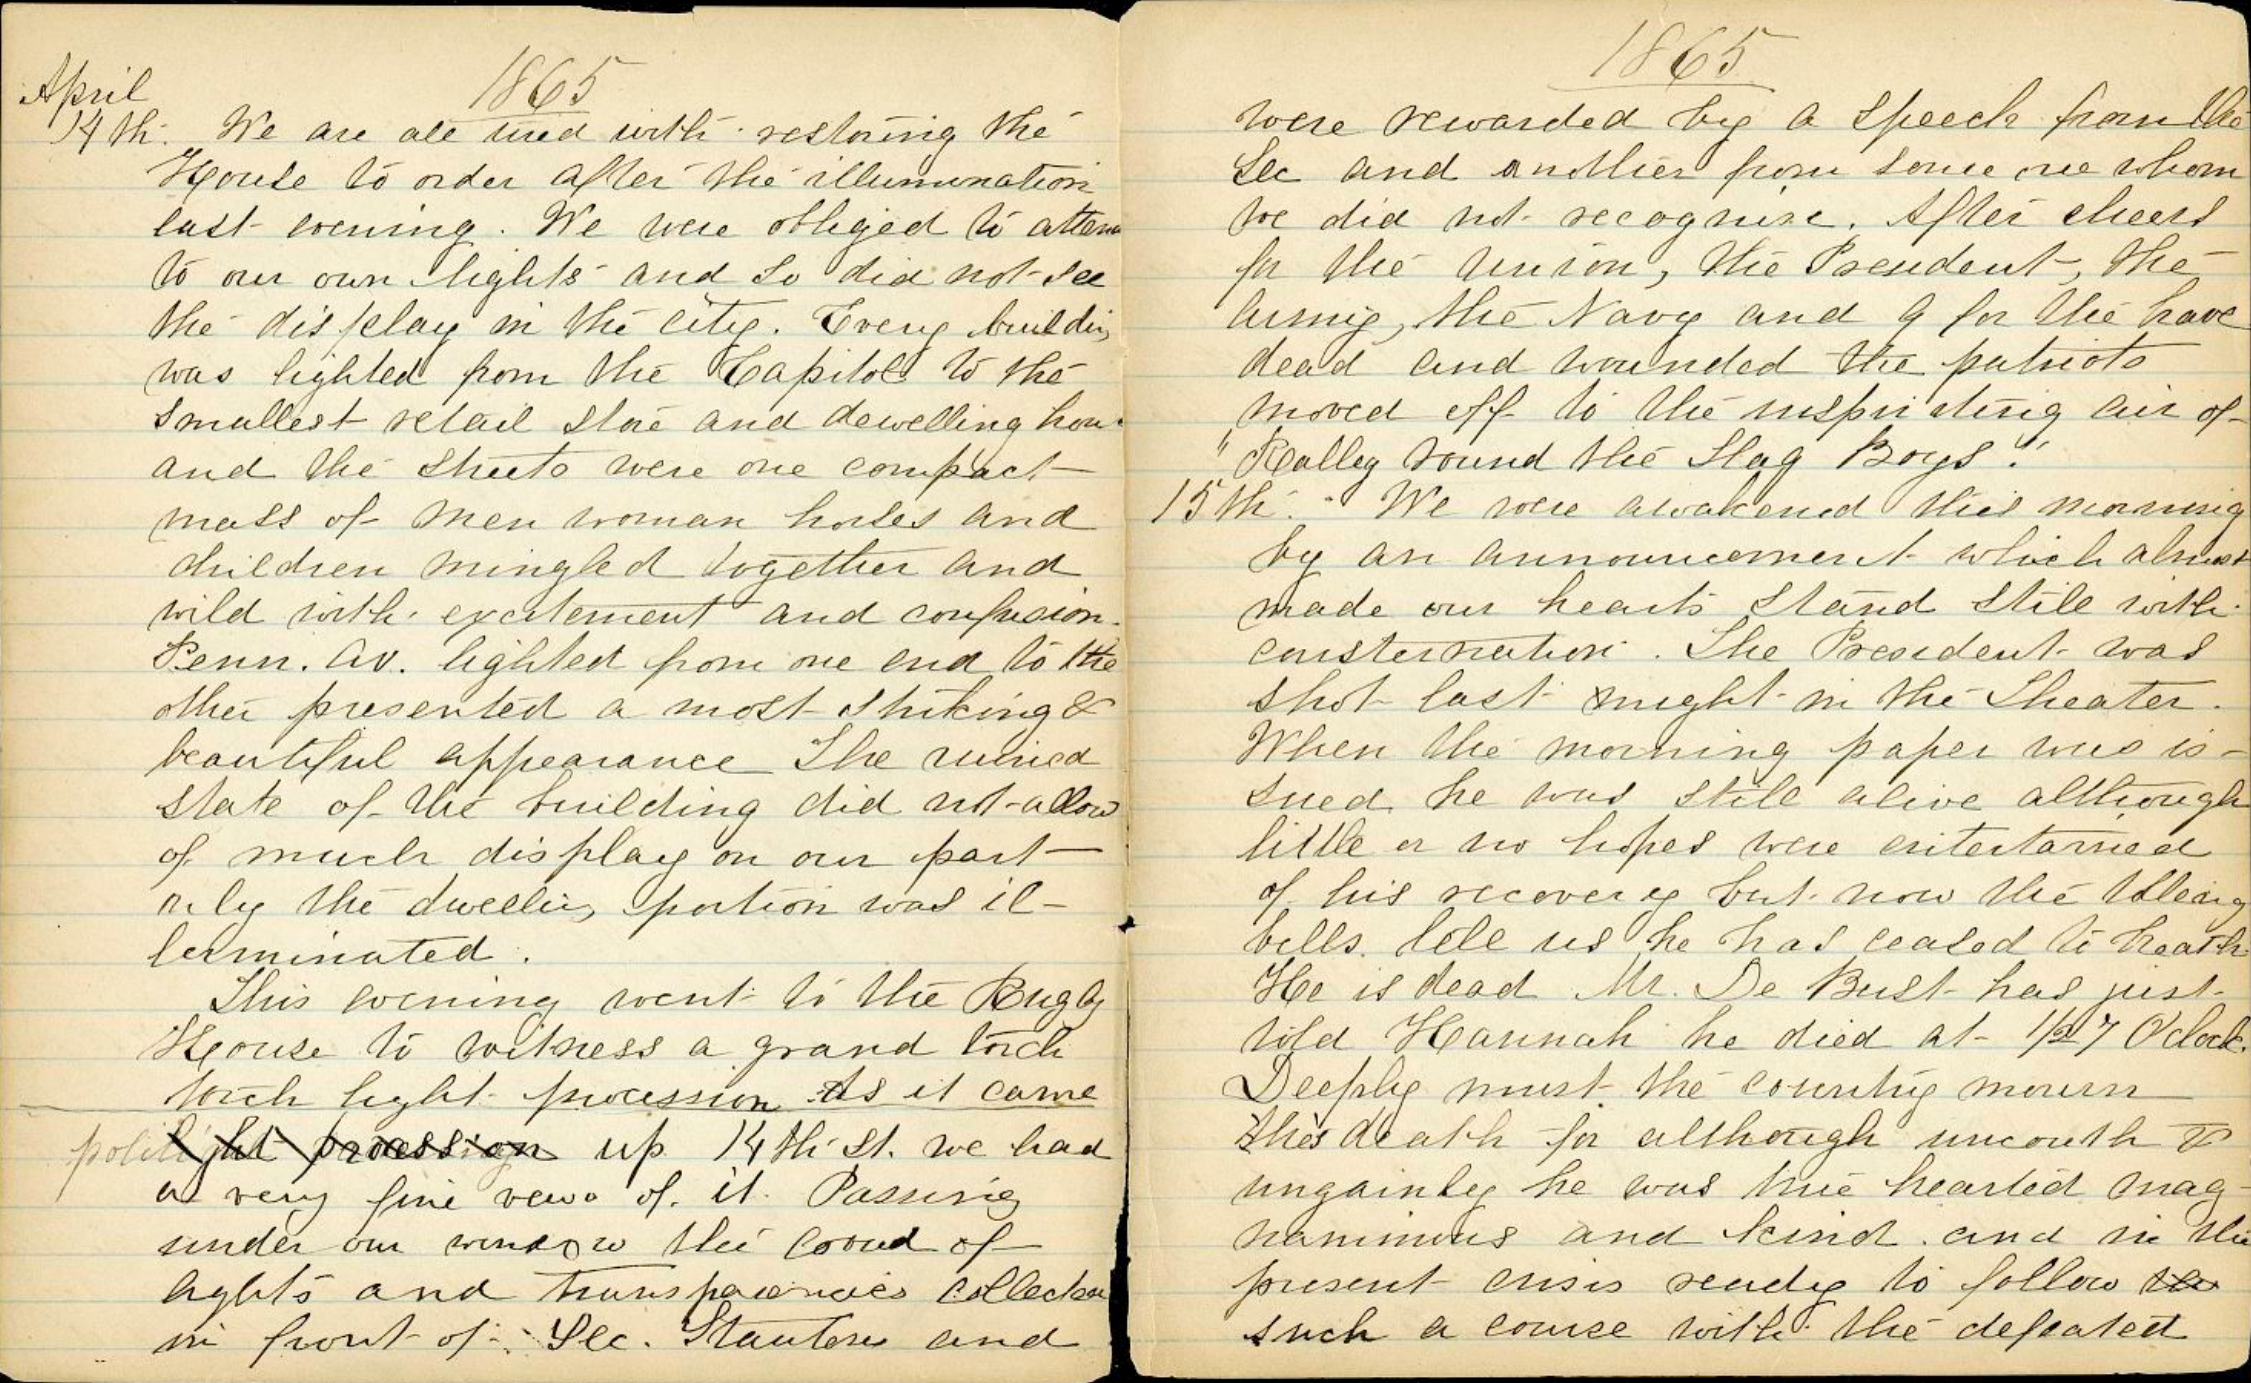 1865
April
14th. We are all tired with restoring the
House to order after the illumination
last evening. We were obliged to atten
to our own lights and so did not see
the display in the city. Every buildin
was lighted from the Capitol to the
smallest retail store and dewelling hou
and the streets were one compact
mass of men woman horses and
children mingled together and
wild with excitement and confusion.
Penn. Av. lighted from one end to the
other presented a most striking &
beautiful appearance The ruined
state of the building did not allow
of much display on our part
only the dwelling portion was il-
luminated.
This evening went to the Rugby
House to witness a grand torch
torch light procession As it came
light procession up 14th St. we had
a very fine view of it. Passing
under our window the crowd of
lights and transparencies collected
in front of Sec. Stantons and
1865
were rewarded by a speech from the
Sec and another from some one whom
we did not recognize. After cheers
for the Union, the President, the
Army, the Navy and 9 for the brave
dead and wounded the patriots
moved off to the inspiriting air of
"Rally round the Flag Boys".
15th. We were awakened this morning
by an announcement which almost
made our hearts stand still with
consternation. The President was
shot last night in the Theater.
When the morning paper was is-
sued he was still alive although
little or no hopes were entertained
of his recovery but now the tolling
bells tell us he has ceased to breath
He is dead Mr. De Bust has just
told Hannah he died at 1/2 7 O'clock.
Deeply must the country mourn
this death for although uncouth &
ungainly he was true hearted mag-
nanimous and kind and in the
present crisis ready to follow
such a course with the defeated